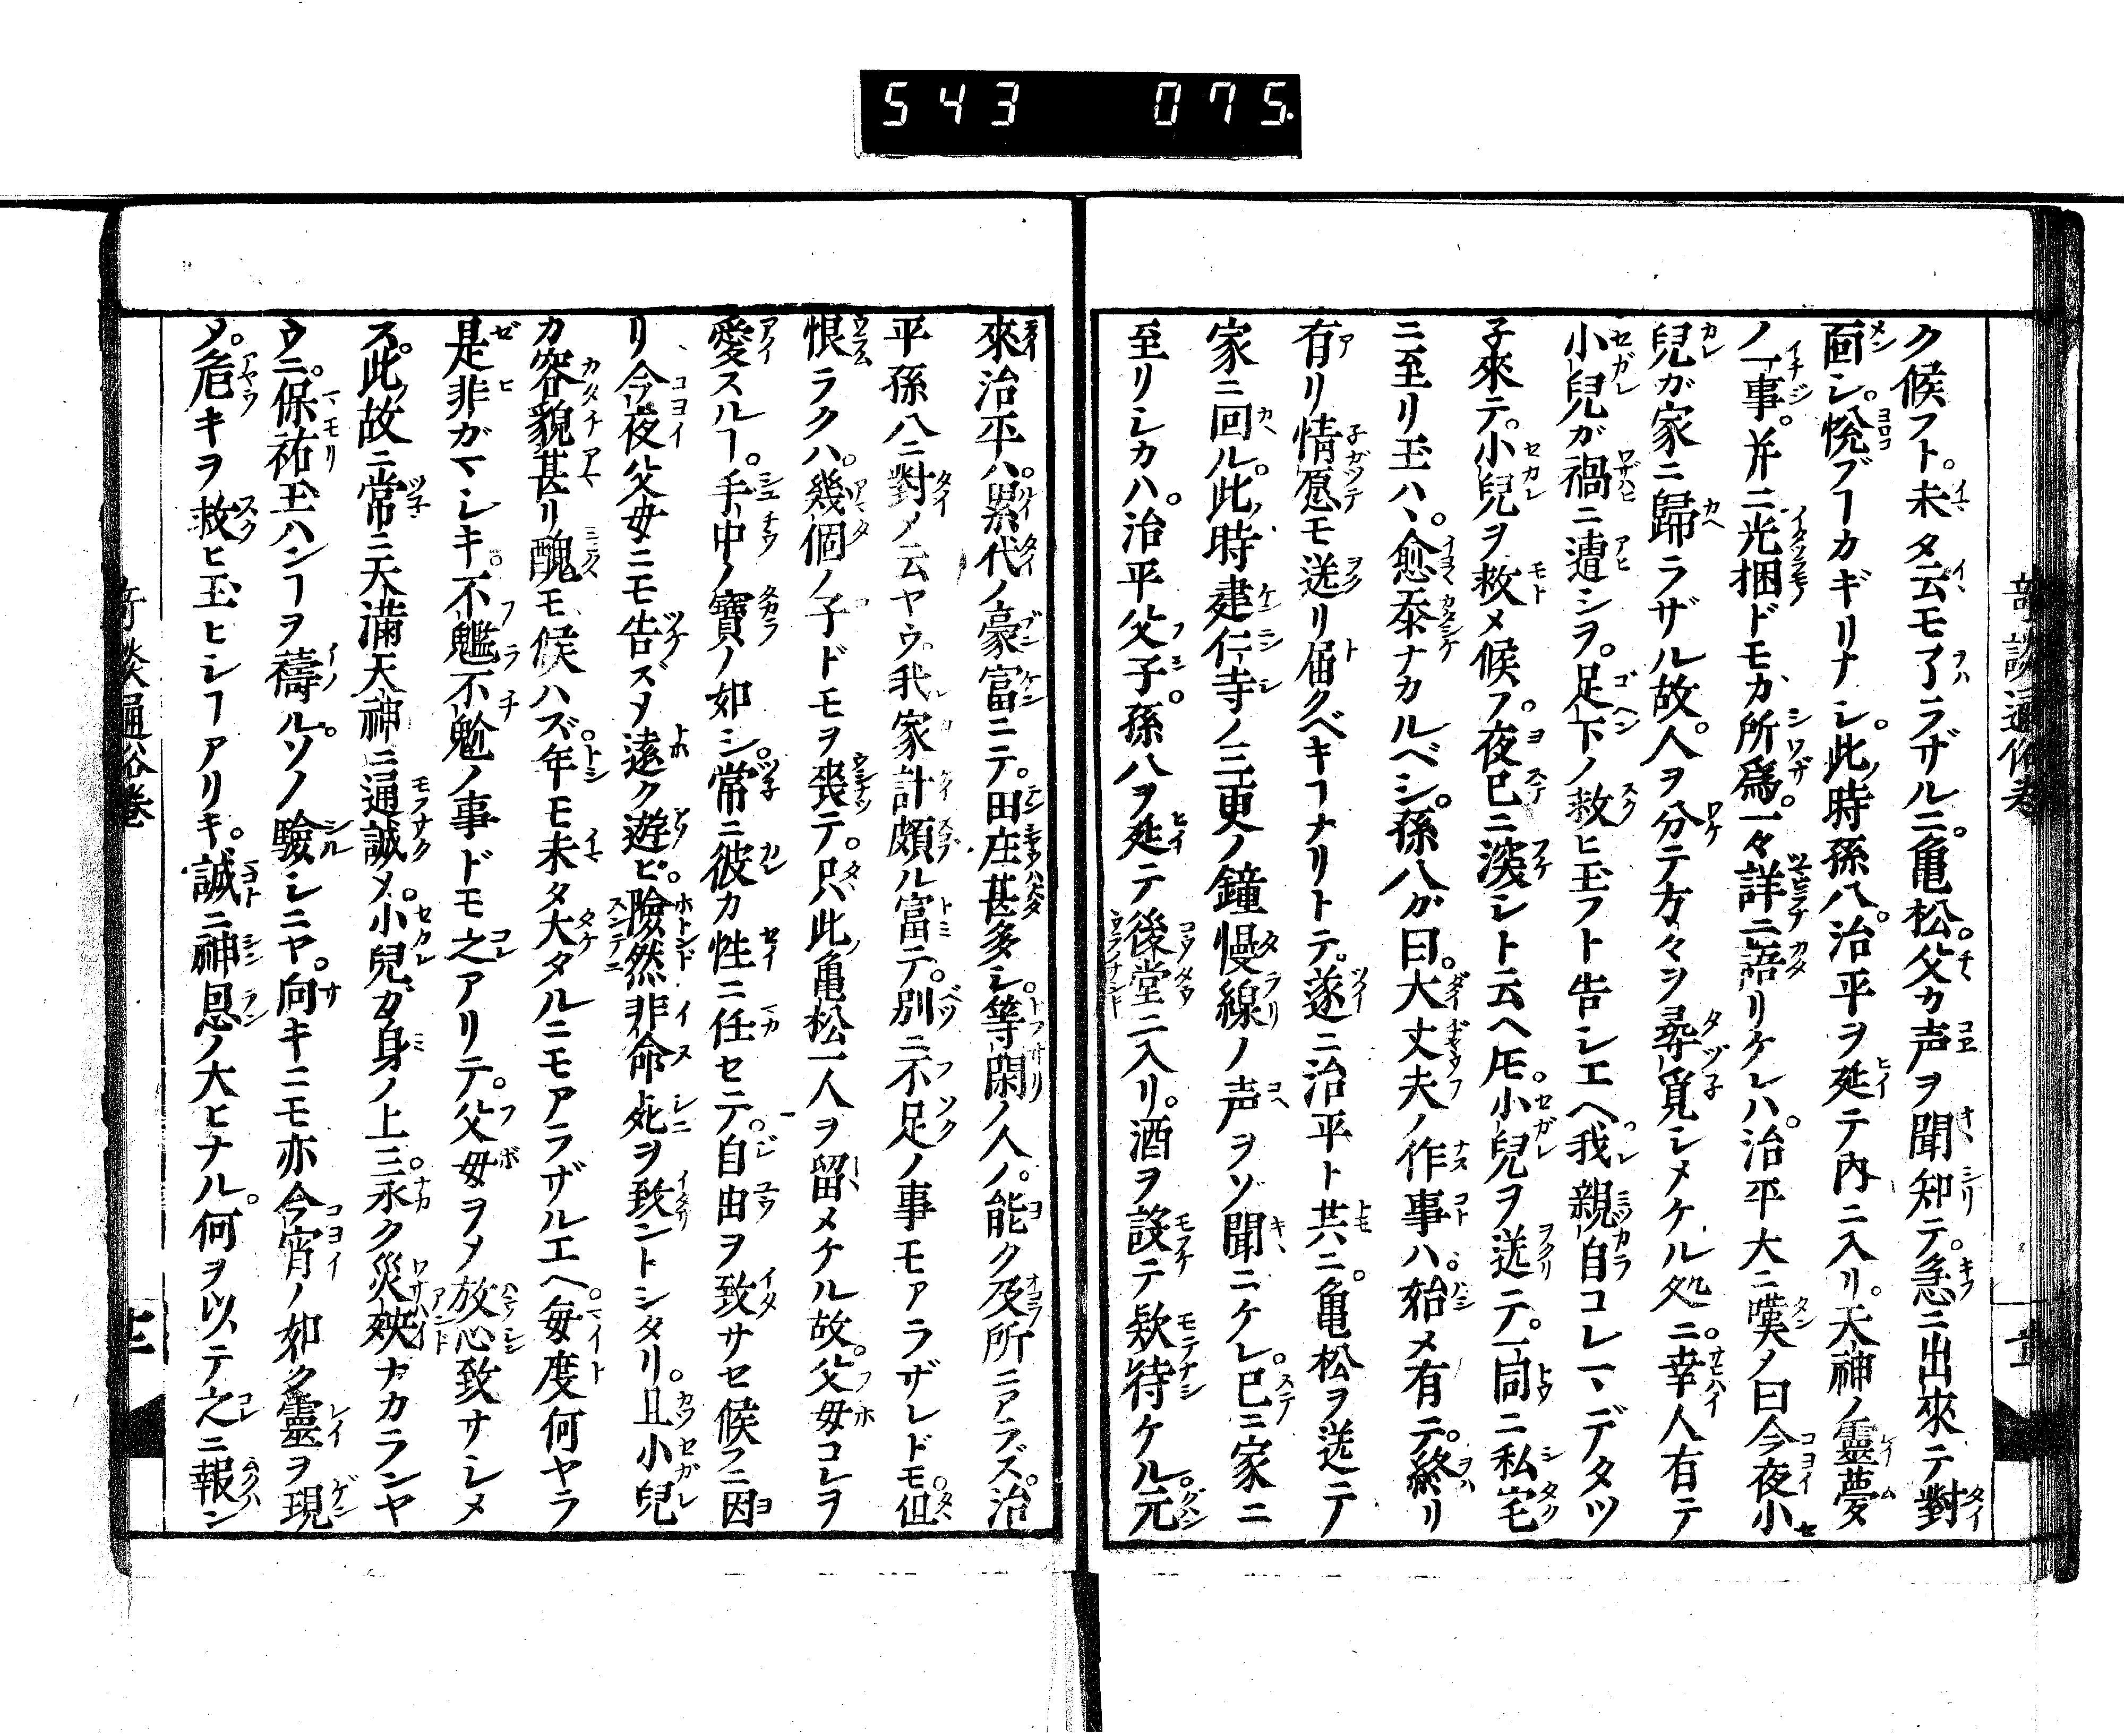 543 075.
ク候フト。未タ云モ了ラザルニ。亀松。父カ声ヲ聞知テ。急ニ出來テ對
面シ。悦ブヿカギリナシ。此時孫八。治平ヲ延テ内ニ入リ。天神ノ靈夢
ノ一事。并ニ光捆ドモカ所爲。一々詳ニ語リケレハ。治平大ニ嘆メ曰今夜小
兒ガ家ニ歸ラザル故。人ヲ分テ方々ヲ尋覓シメケル処ニ。幸人有テ
小兒ガ禍ニ遭シヲ。足下ノ救ヒ玉フト告シエヘ我親自コレマデタツ
子來テ。小兒ヲ救メ候フ。夜已ニ深シト云ヘ𪜈。小兒ヲ送テ。一同ニ私宅
ニ至リ玉ハヽ。愈忝ナカルベシ。孫八カ曰。大丈夫ノ作事ハ。始メ有テ。終リ
有リ情愿モ送リ届クベキヿナリトテ。遂ニ治平ト共ニ。亀松ヲ送テ
家ニ回ル。此時建仁寺ノ三更ノ鐘慢線ノ声ヲソ聞ニケレ。已ニ家ニ
至リシカハ。治平父子。孫八ヲ延テ後堂ニ入リ。酒ヲ設テ欵待ケル。元
來治平ハ。累代ノ豪富ニテ。田庄甚多シ。等閑ノ人ノ。能ク及所ニアラズ。治
平孫八ニ對メ云ヤウ。我家計頗ル富テ。別ニ不足ノ事モアラザレドモ。伹
恨ラクハ。幾個ノ子ドモヲ喪テ。只此亀松一人ヲ留メケル故。父母コレヲ
愛スルヿ。手中ノ寳ノ如シ。常ニ彼カ性ニ任セテ。自由ヲ致サセ候フニ因
リ今夜父母ニモ告ズメ遠ク遊ビ。險然非命死ヲ致ントシタリ。且小兒
カ容貌甚リ醜モ候ハズ。年モ未タ大タルニモアラザルエヘ。毎度何ヤラ
是非ガマシキ。不尶不尬ノ事ドモ之アリテ。父母ヲメ放心致サシメ
ス。此故ニ常ニ天滿天神ニ通誠メ。小兒ガ身ノ上ニ。永ク災殃ナカランヤ
ウニ。保祐玉ハンヿヲ禱ル。ソノ驗シニヤ。向キニモ亦今宵ノ如ク靈ヲ現
メ。危キヲ救ヒ玉ヒシヿアリキ。誠ニ神恩ノ大ヒナル。何ヲ以テ之ニ報ン